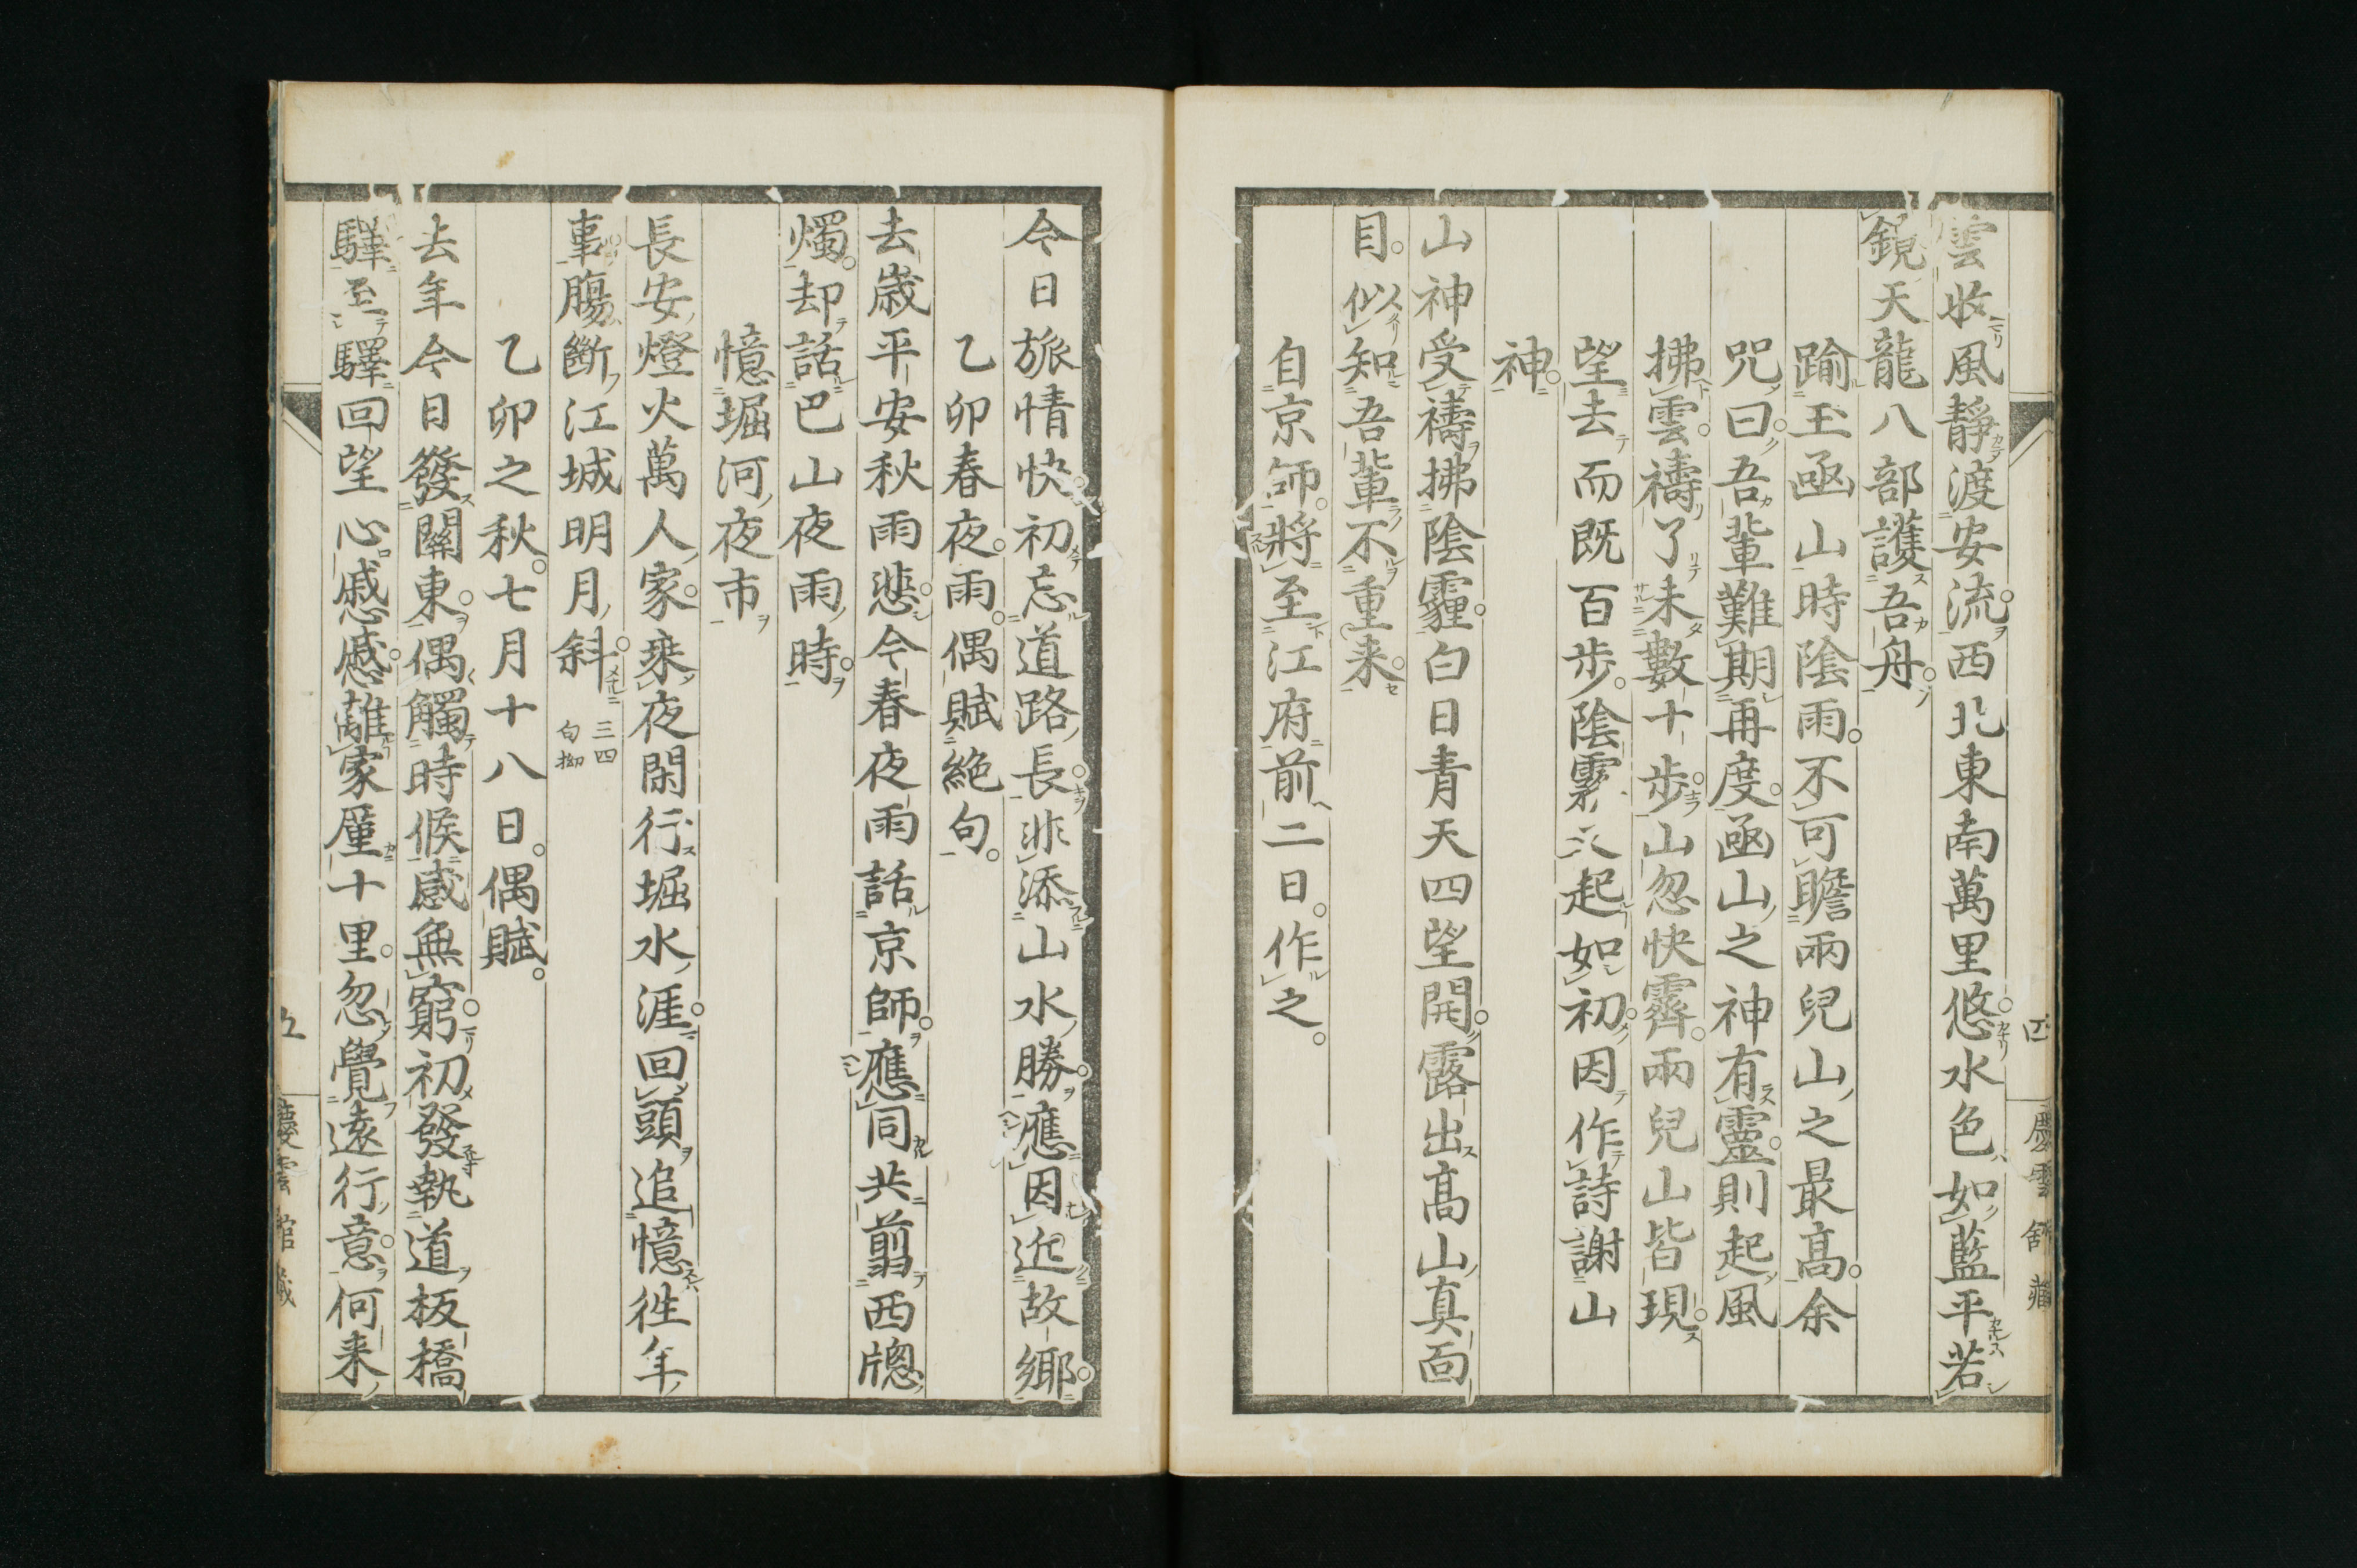 雲收風靜渡安流西北東南萬里悠水色如藍平若
鏡天龍八部護吾舟
踰玉凾山時陰雨不可瞻兩兒山之最高余
咒曰吾輩難期再度凾山之神有靈則起風
拂雲禱了未數十歩山忽快霽兩兒山皆現
望去而既百歩陰雲起如初因作詩謝山
神
山神受禱拂陰霾白日青天四望開露出高山真面
目似知吾輩不重来
自京師將至江府前二日作之
四
慶雲舘藏
今日旅情快初忘道路長非添山水勝應因近故鄉
乙卯春夜雨偶賦絶句
去歳平安秋雨悲今春夜雨話京師應同共翦西牕
燭却話巴山夜雨時
憶堀河夜市
長安燈火萬人家乗夜閑行堀水涯回頭追憶徃年
事膓斷江城明月斜 三四句拗
乙卯之秋七月十八日偶賦
去年今日發關東偶觸時候感無窮初發執道板橋
驛至驛回望心慼慼離家厪十里忽覺遠行意何来
五
慶雲舘藏